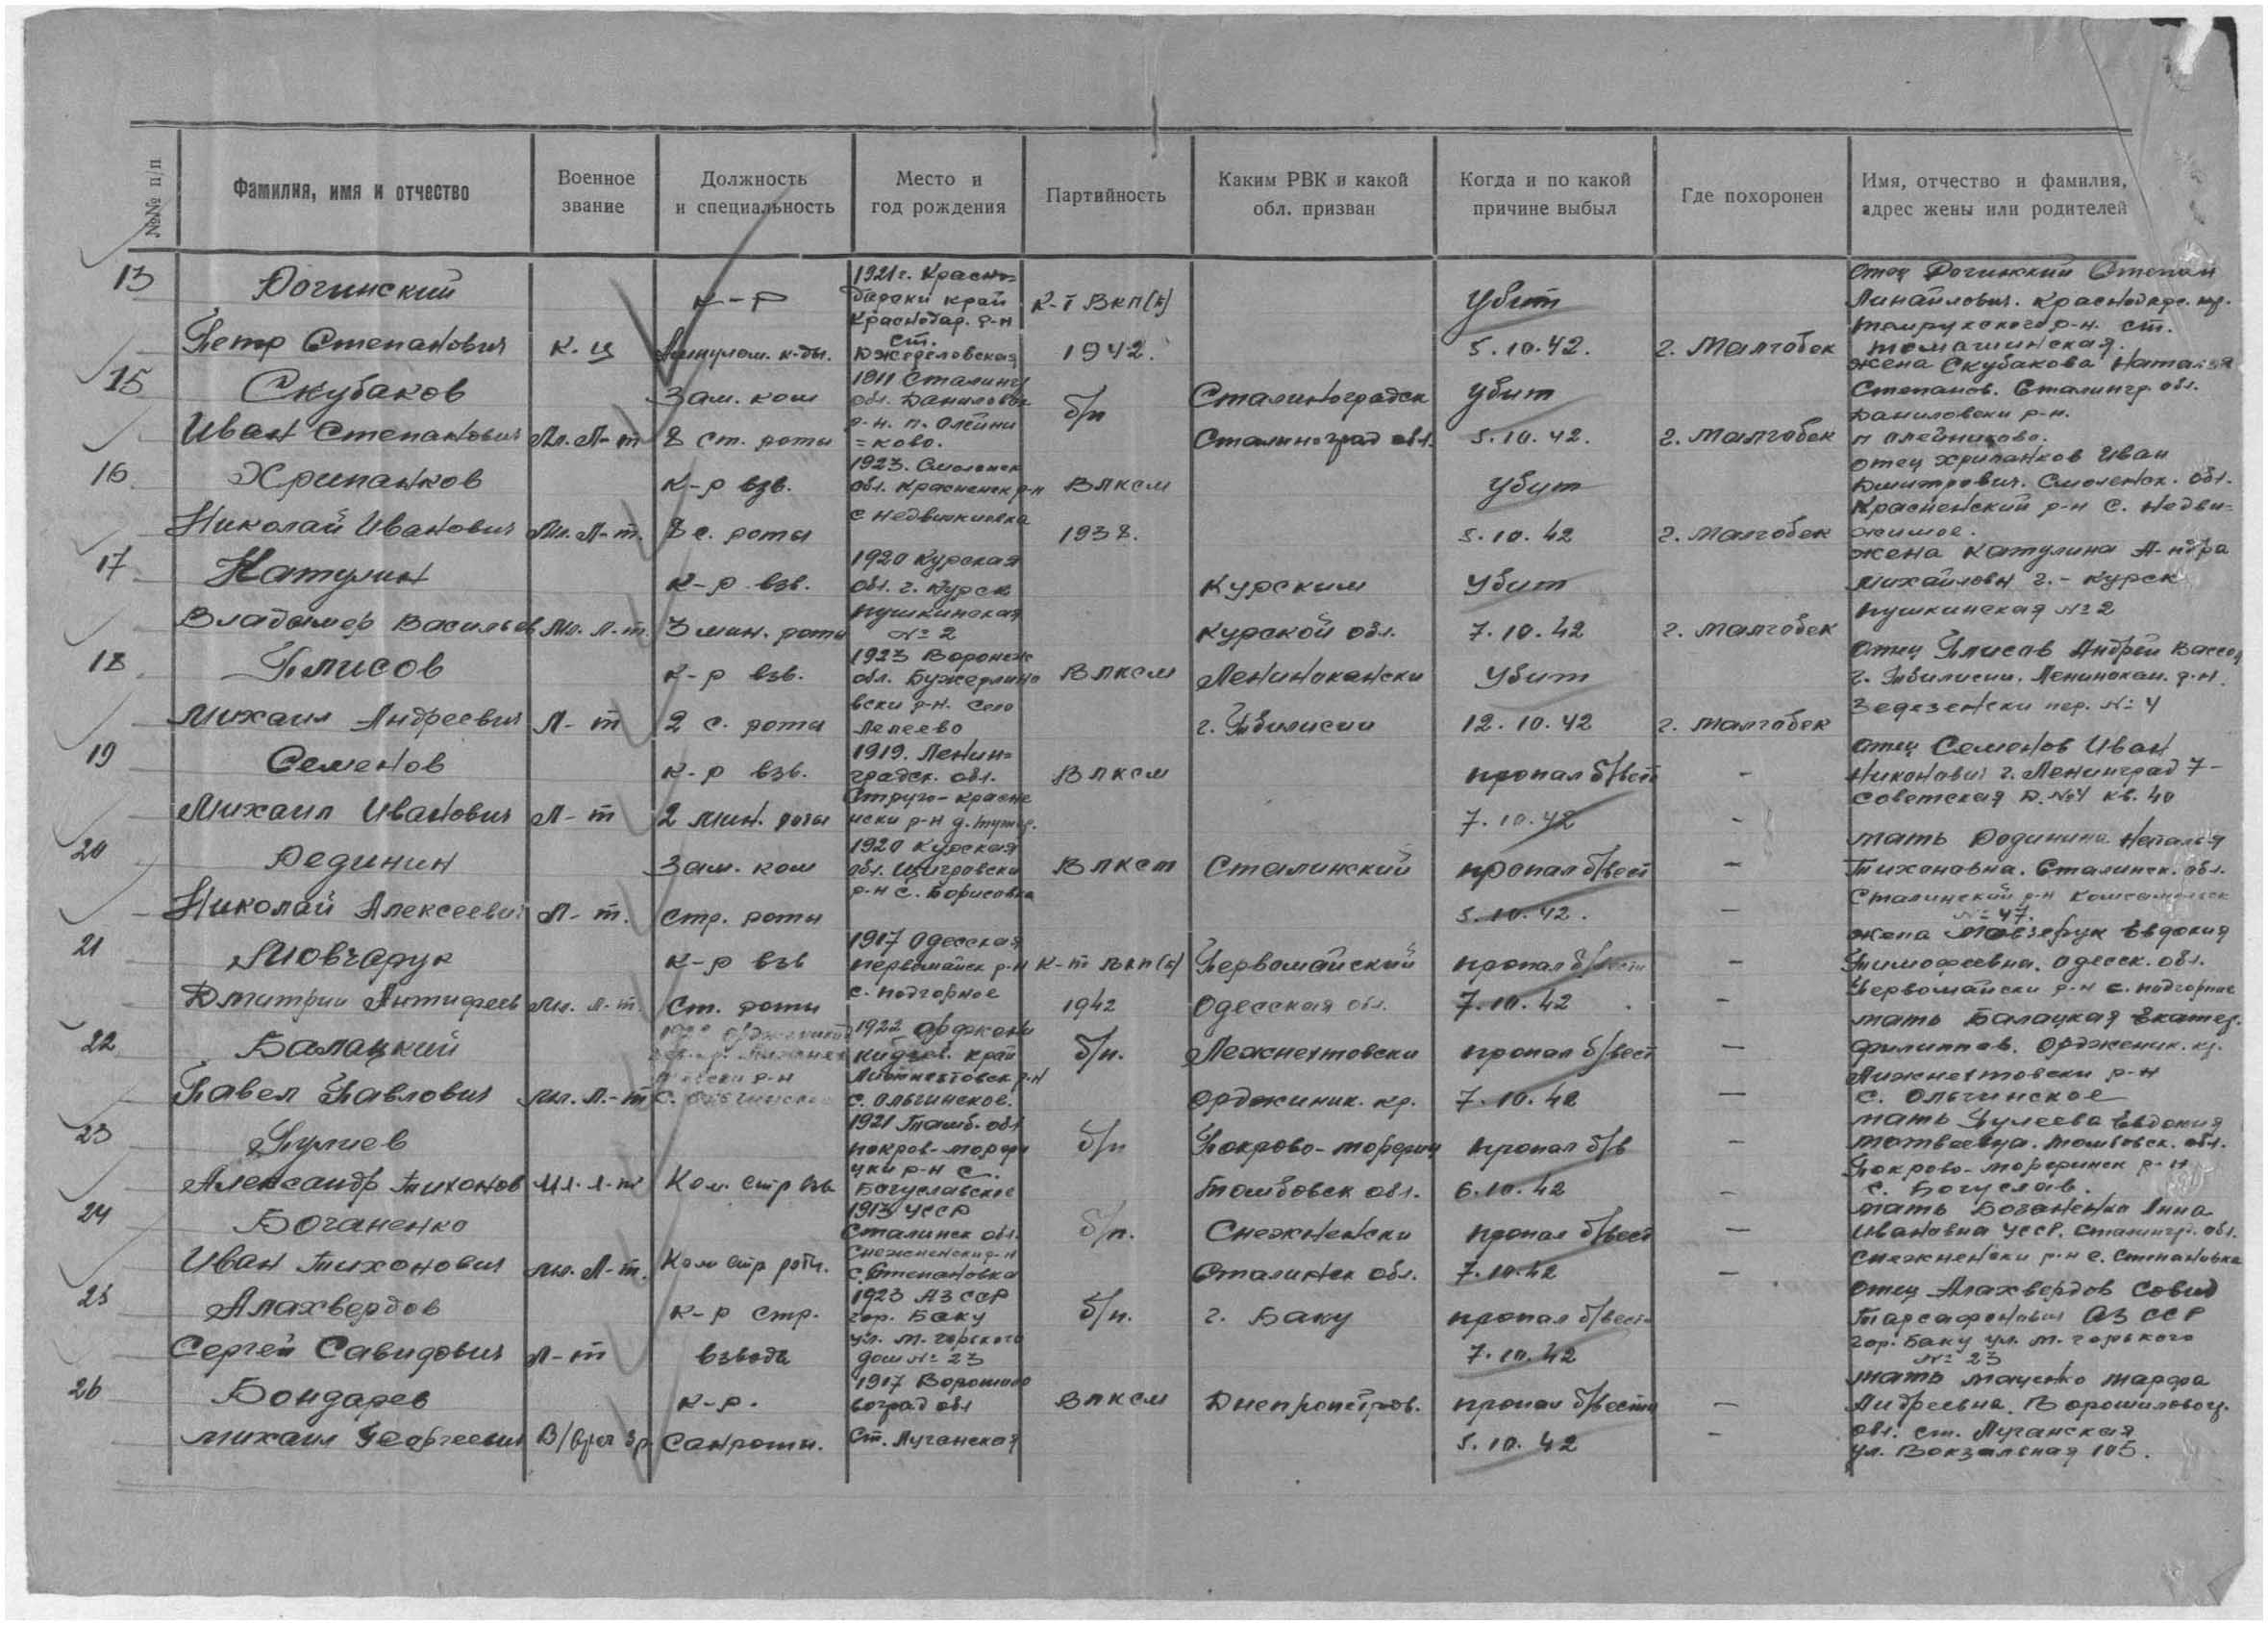 №№ п/п
Фамилия, имя и отчество
Военное
звание
Должность
и специальность
Место и
год рождения
Партийность
Каким РВК и какой
обл. призван
Когда и по какой
причине выбыл
Где похоронен
Имя, отчество и фамилия,
адрес жены или родителей
13
Логинский
Петр Степанович
К-р
1921 г. Красно=
край
Краснодар. р-н
ст.
Джереловская
К-т ВКП(б)
1942.
Убит
5.10.42.
г. Малгобек
отец Логинский Степан
Краснодар. кр.
р-н. ст.
15
Скубаков
Иван Степанович
Мл. Л-т
Зам. ком
8 ст. роты
1911 Сталингр
обл. Даниловск
р-н. п. Олейни
=ково.
б/п
Сталиноградск
Сталинград обл.
Убит
5.10.42.
г. Малгобек
жена Скубакова Наталья
Степанов. Сталингр. обл.
Даниловски р-н.
п Олейниково.
16
Хрипанков
Николай Иванович
Мл. Л-т.
К-р взв.
8 с. роты
1923. Смоленск
обл. Красненск р-н
с
ВЛКСМ
1938.
Убит
5.10.42
г. Малгобек
отец Хрипанков Иван
Дмитрович. Смоленск. обл.
Красненский р-н с. Недви=
жимое.
17
Катулин
Владимер Васильев
Мл. Л-т.
К-р взв.
3 мин. роты
1920 Курская
обл. г. Курск
Пушкинская
№ 2
Курским
Курской обл.
Убит
7.10.42
г. Малгобек
жена Катулина А-ндра
Михайловн г.- Курск
Пушкинская № 2
18
Плисов
Михаил Андреевич
Л-т
К-р взв.
2 с. рота
1923 Воронеж
обл.
вски р-н. село
ВЛКСМ
Ленинокански
г. Тбилисии
Убит
12.10.42
г. Малгобек
отец Плисов Андрей
г. Тбилисии. Ленинокан. р-н.
пер. № 4
19
Семенов
Михаил Иванович
Л-т
К-р взв.
2 мин. роты
1919. Ленин=
градск. обл.
Струго-красне
нски р-н д.
ВЛКСМ
пропал б/вест
7.10.42
отец Семенов Иван
Никонович г. Ленинград 7-
советская д. №4 кв. 40
20
Дединин
Николай Алексеевич
Л-т.
Зам. ком
стр. роты
1920 Курская
обл. Щигровски
р-н с. Борисовка
ВЛКСМ
Сталинский
пропал б/вест
5.10.42.
мать Наталья
Тихоновна. Сталинск. обл.
Сталинский р-н Комсомольск
№ 47.
21
Мовчарук
Дмитрии
Мл. л-т.
К-р взв
Ст. роты
1917 Одесская
Первомайск р-н
с. Подгорное
К-т ВКП(б)
1942
Первомайский
Одесская обл.
пропал б/вести
7.10.42
жена Евдокия
Тимофеевна. Одесск. обл.
Первомайски р-н с. Подгорное
22
Балацкий
Павел Павлович
Мл. Л.-т
1922 Орджони
кидзов. край
с. Ольгинское.
б/п.
Лежнехтовски
Орджиник. кр.
пропал б/вест
7.10.42
мать Балацкая Екатер.
Филиппов. Орджоник. кр.
Лижнехтовски р-н
с. Ольгинское
23
Пулиев
Александр Тихонов
Мл. л-т
Ком. стр взв
1921 Тамб. обл
Покров-Марфи
цки р-н с.
Богуславское
б/п
Тамбовск обл.
пропал б/в
6.10.42
мать Пулеева Евдокия
Матвеевна. Тамбовск. обл.
р-н
с. Богуслав.
24
Боганенко
Иван Тихонович
Мл. Л-т.
Ком стр роты.
1913 УССР
Сталинск обл.
Снежненски р-н
с. Степановка
б/п.
Снежненски
Сталинск обл.
пропал б/вест
7.10.42
мать Боганенко Анна
Ивановна УССР. обл.
Снежненски р-н с. Степановка
25
Алахвердов
Сергей Савидович
Л-т
К-р стр.
взвода
1923 АЗ ССР
гор. Баку
ул. М. Горького
дом № 23
б/п.
г. Баку
пропал б/вести
7.10.42
отец Алахвердов Совид
АЗ ССР
гор. Баку ул. М. Горького
№ 23
26
Бондарев
Михаил Георгиевич
К-р.
Санроты.
1917 Ворошило
воград обл
ст. Луганская
ВЛКСМ
Днепропетров.
пропал б/вести
5.10.42
мать Марфа
Андреевна. Ворошиловог.
обл. ст. Луганская
ул. Вокзальная 105.